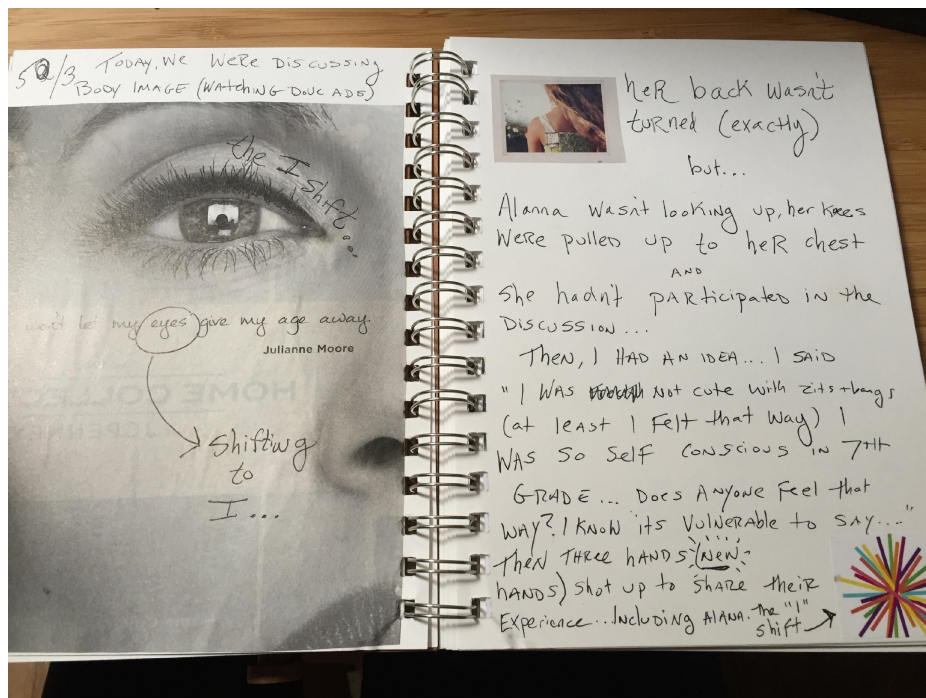 5/3 TODAY, WE WERE DISCUSSING
BODY IMAGE (WATCHING DOVE ADS)
the I shift...
won't let my eyes give my age away.
Julianne Moore
HOME COLLEC
JCPENNEY
Shifting
to
I...
heR back wasn't
tuRned (exactly)
but...
Alanna wasn't looking up, her knees
weRe pulled up to heR chest
AND
She hadn't participated in the
DISCUSSION...
THEN, I HAD AN IDEA... I SAID
"I WAS Not cute with zits + bangs
(at least I felt that way) I
WAS SO SELF CONSCIOUS IN 7TH
GRADE... DOES ANYONE FEEL that
WAY? I KNOW its VulNeRable to SAY...."
THEN THREE HANDS, (NEW
HANDS) SHOT UP to SHARE their
Experience... Including ALANA. The "I"
shift